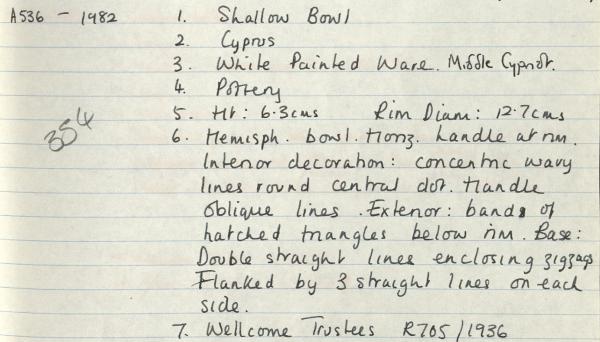 A536 - 1982
1. Shallow Bowl
2. Cyprus
3. White Painted Ware. Middle Cypriot.
4. Pottery
354
5. Ht: 6.3cms Rim Diam: 12.7cms
6. Hemisph. bowl. Horiz. handle at rim.
Interior decoration: concentric wavy
lines round central dot. Handle
oblique lines. Exterior: bands of
hatched triangles below rim. Base:
Double straight lines enclosing zigzags
Flanked by 3 straight lines on each
side.
7. Wellcome Trustees R705/1936